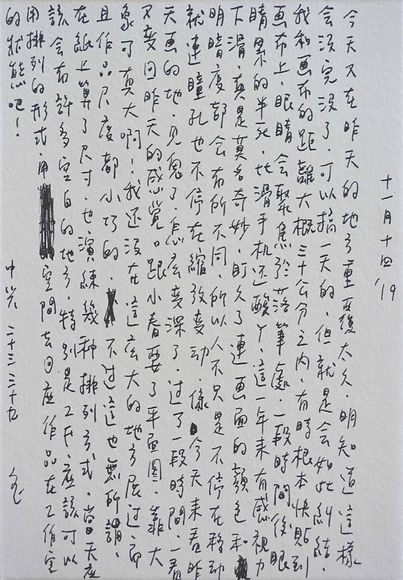 十一月十四 '19
今天又在昨天的地方重複太久，明知道這樣
會沒完沒了，可以搞一天的，但就是會如此糾結，
我和画布的距離大概三十公分之內，有時根本快貼到
画布上，眼睛會聚焦於落筆處，一段時間後，眼
睛累的半死，比滑手机还酸ㄚ，這一年来有感視力
下滑，真是莫名奇妙，盯久了連画面的顏色和
明暗度都會有所不同，所以人不只是不停在移動
就連瞳孔也不停在縮放变动，像今天来看昨
天画的地，見鬼了，怎麼变深了，过了一段時間，一看
又变回昨天的感覺。跟小春要了平面图，靠大
家可真大啊！我还沒在這麼大的地方展过，而
且作品尺度都小巧的，不过這也無所謂，
在紙上算了尺寸，也演練幾种排列方式，當天应
該会有許多空白的地方，特別是2F，应該可以
用排列的形式，用空間去回应作品在工作室
的狀態吧！
二十三 三十九